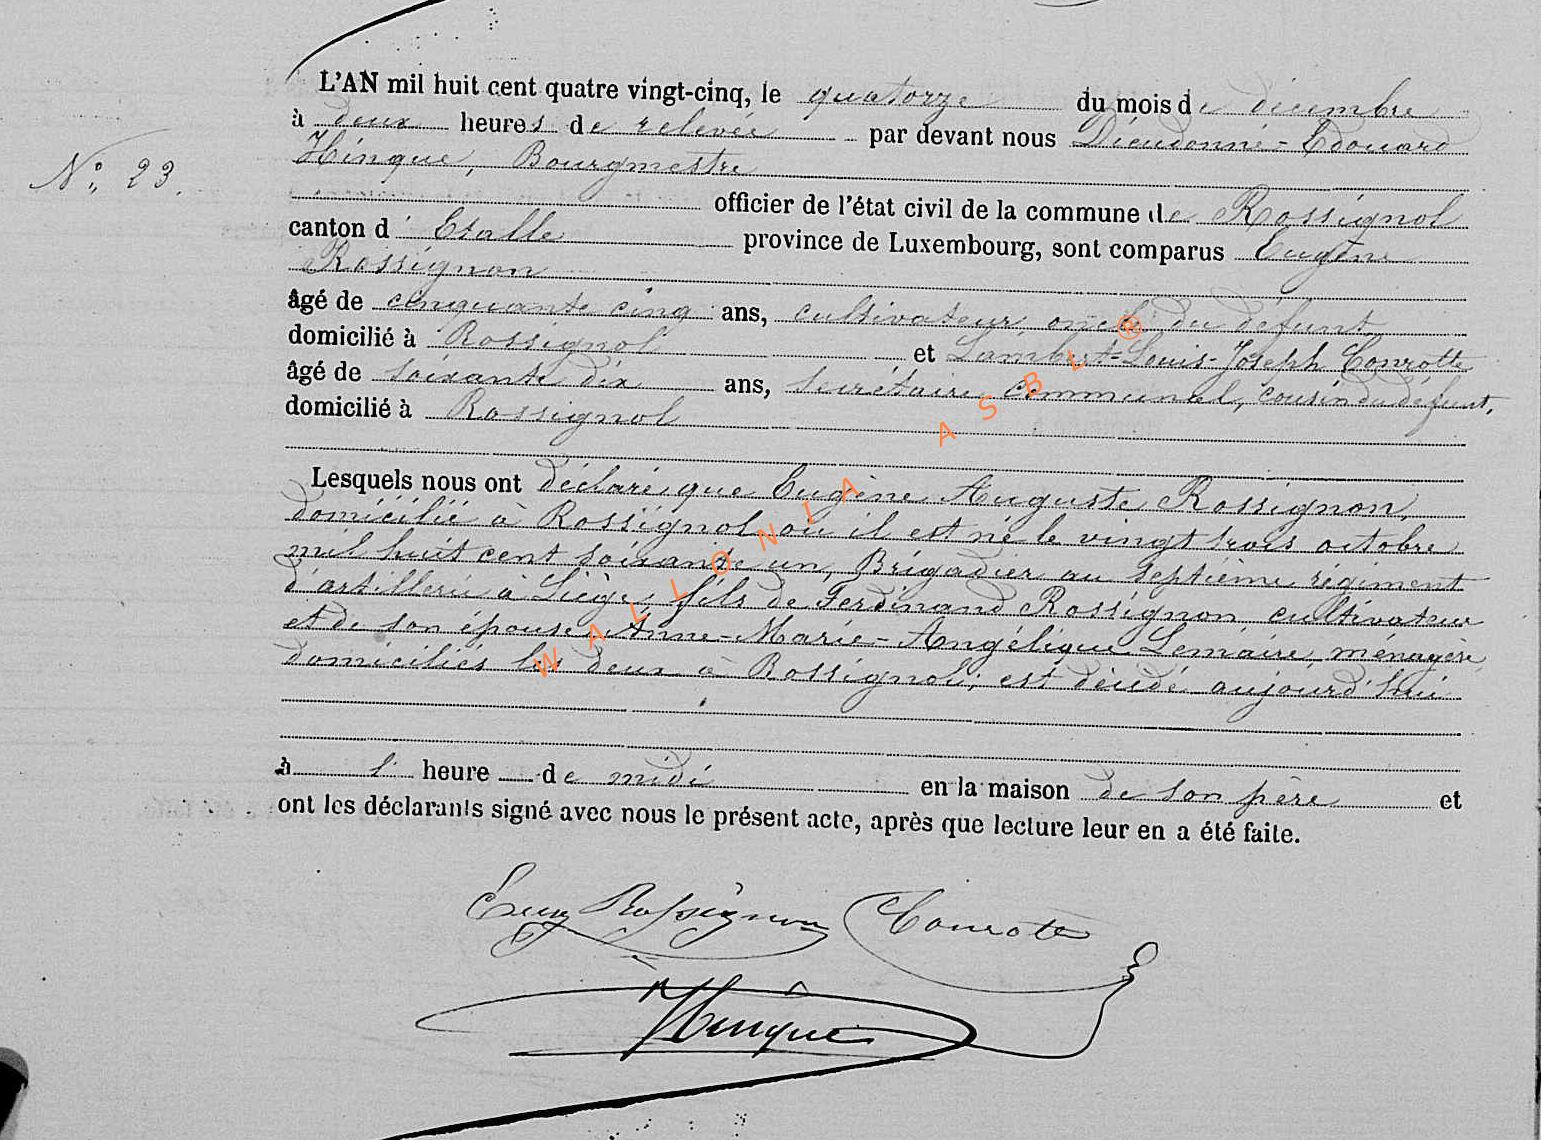 L'AN mil huit cent quatre vingt-cinq, le quatorze du mois de décembre
à deux heures de relevée par devant nous Dieudonné-Edouard
Hinque, Bourgmestre
N° 23.
officier de l'état civil de la commune de Rossignol
canton d'Etalle province de Luxembourg, sont comparus Eugène
Rossignon
âgé de cinquante cinq ans, cultivateur, oncle du défunt
domicilié à Rossignol et Lambert-Louis-Joseph Conrotte
âgé de soixante dix ans, secrétaire communal, cousin du défunt,
domicilié à Rossignol
Lesquels nous ont déclaré que Eugène Auguste Rossignon,
domicilié à Rossignol où il est né le vingt trois octobre
mil huit cent soixante un, Brigadier au septième régiment
d'artillerie à Liège, fils de Ferdinand Rossignon cultivateur
et de son épouse Anne-Marie-Angélique Lemaire, ménagère
domiciliés les deux à Rossignol, est décédé aujourd'hui
à l' heure de midi en la maison de son père et
ont les déclarants signé avec nous le présent acte, après que lecture leur en a été faite.
Eug Rossignon Conrotte
Hinque
WALLONIA ASBL ®